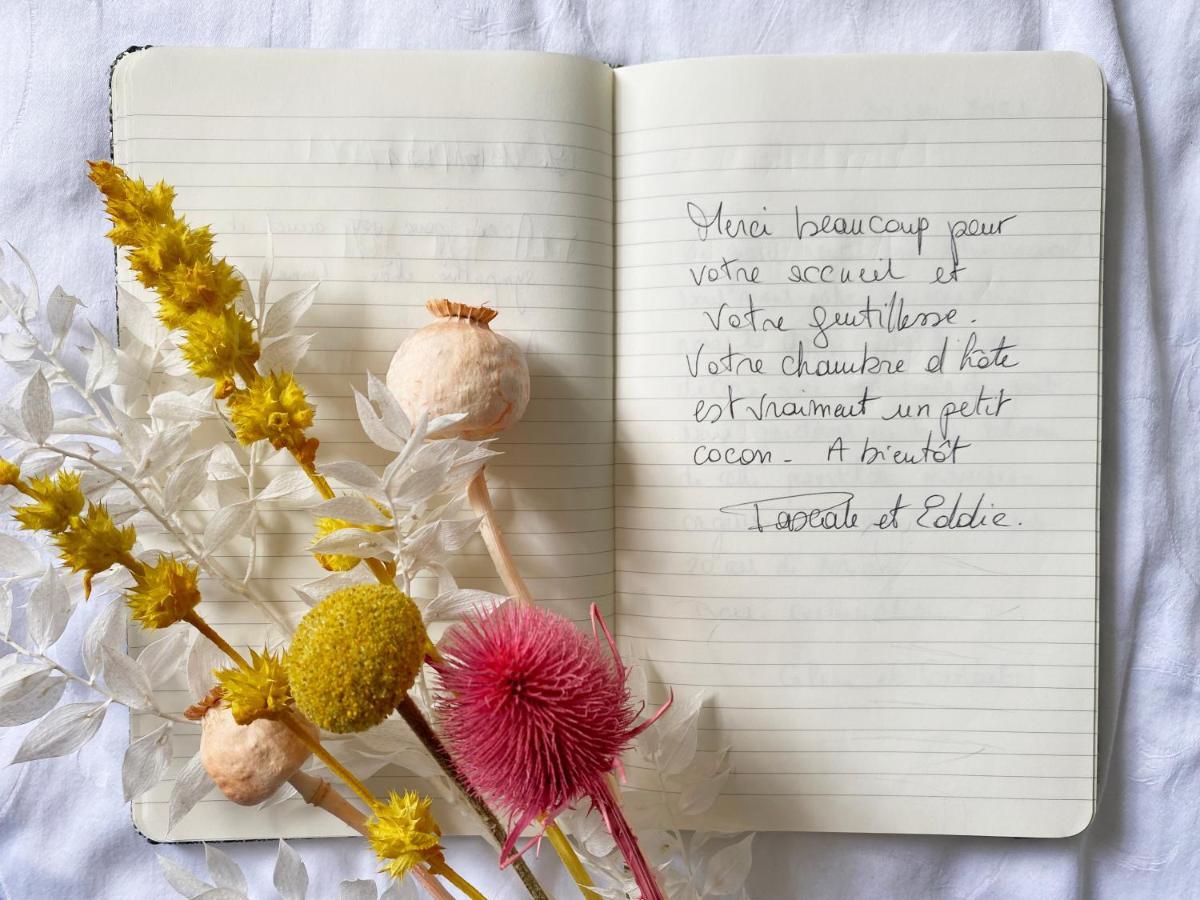 Merci beaucoup pour
votre accueil et
votre gentillesse.
Votre chambre d'hôte
est vraiment un petit
cocon - A bientôt
Pascale et Eddie.